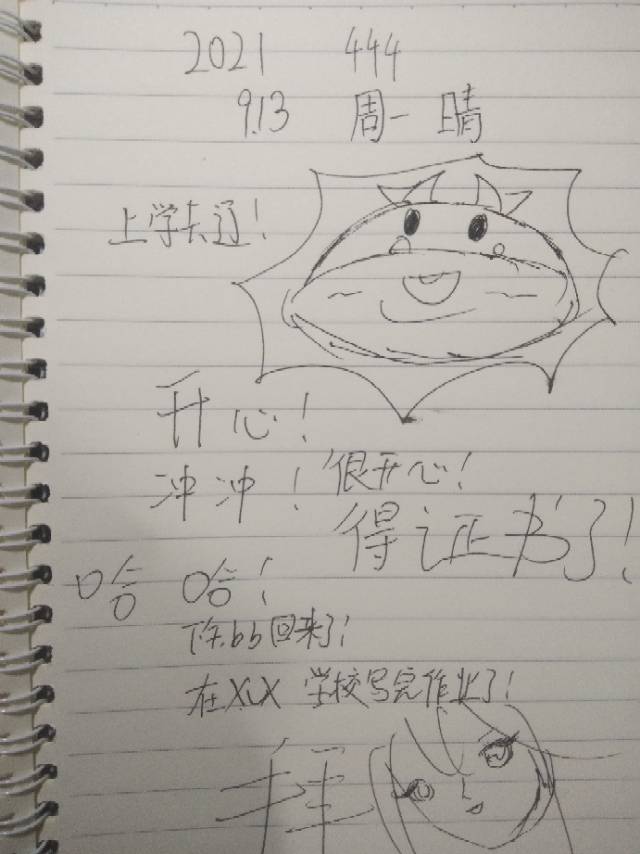 2021 444
9.13 周一 晴
上学去逗！
开心！
冲冲！ 很开心！
得证书了！
哈哈！
bb回来了！
在XLX 学校写完作业了！
拜